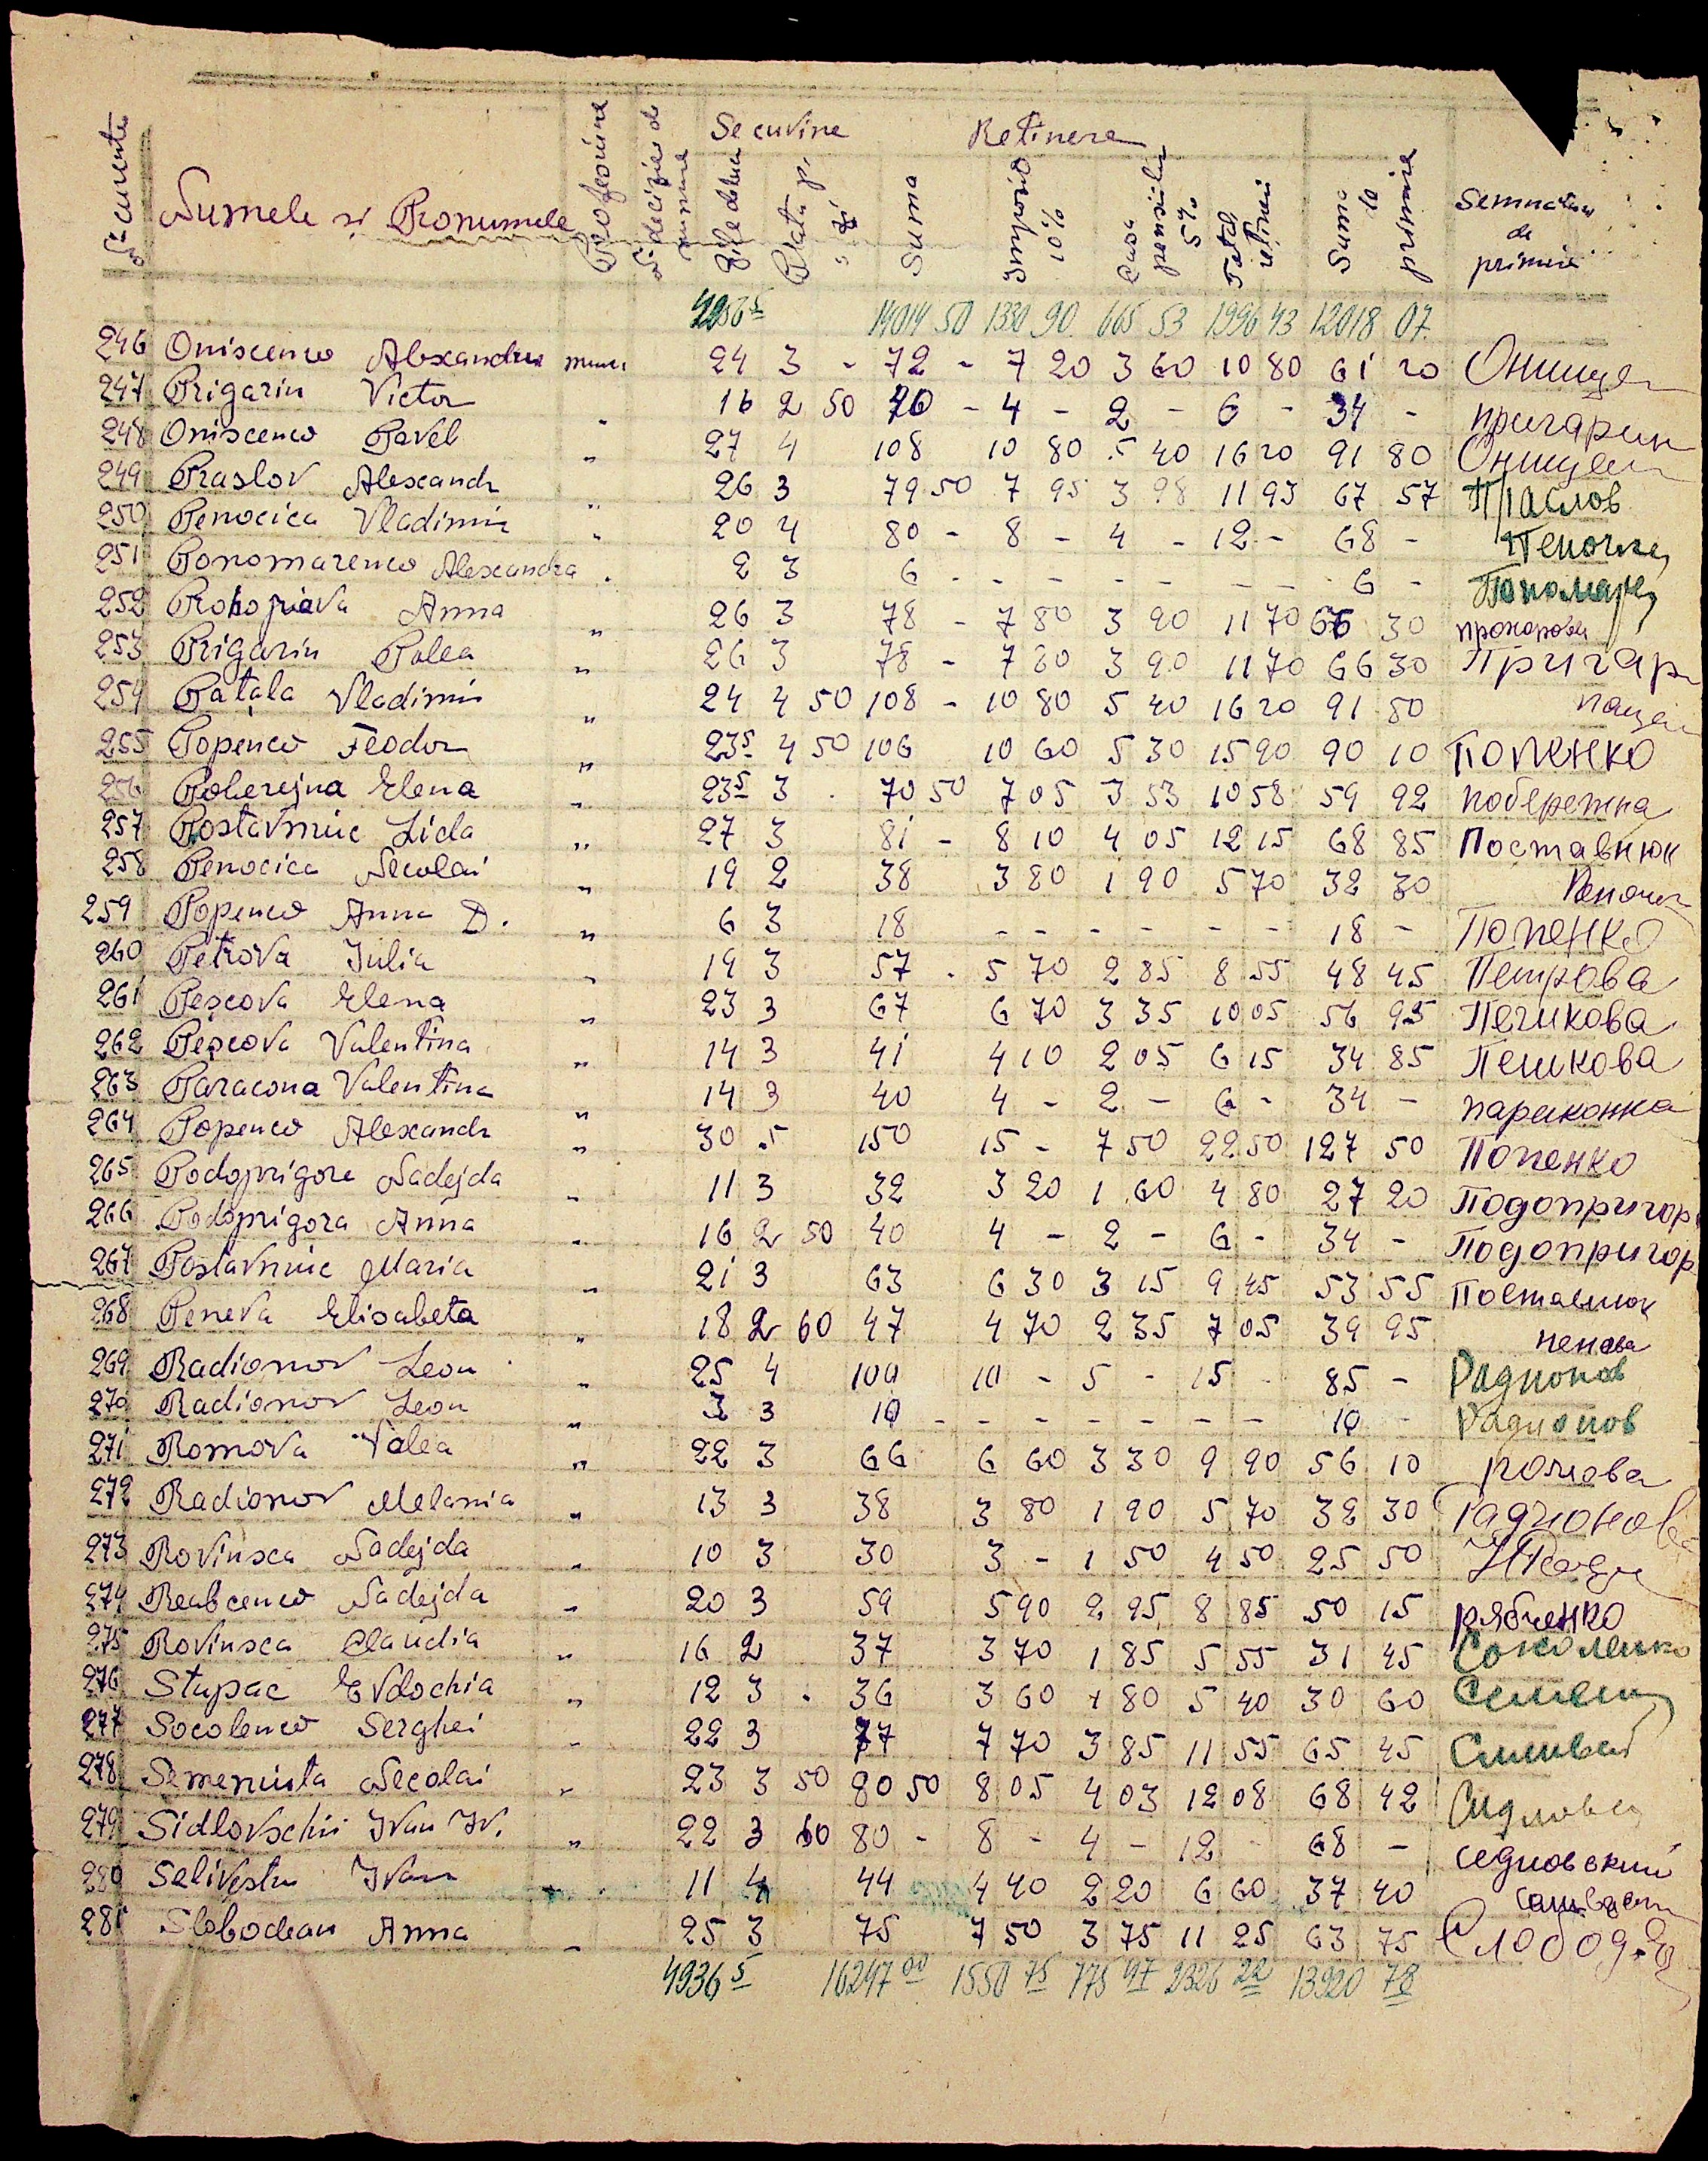 N-curente Numele și Pronumele Profesiunea N decizie de numire Se cuvine Zile de lucru Plata p. 1 zi Suma Retinere Impozit 10% Casa pensiilor 5% Total retineri Suma la primire Semnatura de primire
14014 50 1330 90 665 53 1996 43 12018 07
246 Oniscenco Alexandru 24 3 - 72 - 7 20 3 60 10 80 61 20 Онищен
247 Prigarin Victor " 16 2 50 40 - 4 - 2 - 6 - 34 - пригарин
248 Oniscenco Pavel " 27 4 108 10 80 5 40 16 20 91 80 Онищен
249 Praslov Alexandr " 26 3 79 50 7 95 3 98 11 93 67 57 Праслов
250 Penocica Vladimir " 20 4 80 - 8 - 4 - 12 - 68 - Пеночка
251 Ponomarenco Alexandra " 2 3 6 - - - - - - - 6 - Пономаре
252 Anna " 26 3 78 - 7 80 3 90 11 70 66 30 прохорова
253 Prigarin Palea " 26 3 78 - 7 80 3 90 11 70 66 30 Пригар
254 Pațala Vladimir " 24 4 50 108 - 10 80 5 40 16 20 91 80
255 Popenco Feodor " 23 5 4 50 106 10 60 5 30 15 90 90 10 Попенко
256 Poberejna Elena " 23 5 3 - 70 50 7 05 3 53 10 58 59 92 побережна
257 Postavniuc Lida " 27 3 81 - 8 10 4 05 12 15 68 85 Поставнюк
258 Penocica Necolai " 19 2 38 3 80 1 90 5 70 32 30 Пеноч
259 Popenco Anna D. " 6 3 18 - - - - - - 18 - Попенко
260 Petrova Iulia " 19 3 57 - 5 70 2 85 8 55 48 45 Петрова
261 Peșcova Elena " 23 3 67 6 70 3 35 10 05 56 95 Пешкова
262 Peșcova Valentina " 14 3 41 4 10 2 05 6 15 34 85 Пешкова
263 Paracona Valentina " 14 3 40 4 - 2 - 6 - 34 - параконна
264 Popenco Alexandr " 30 5 150 15 - 7 50 22 50 127 50 Попенко
265 Podoprigora Nadejda " 11 3 32 3 20 1 60 4 80 27 20 Подопригор
266 Podoprigora Anna " 16 2 50 40 4 - 2 - 6 - 34 - Подопригор
267 Postavniuc Maria " 21 3 63 6 30 3 15 9 45 53 55 Поставнюк
268 Peneva Elisabeta " 18 2 60 47 4 70 2 35 7 05 39 95 пенева
269 Radionov Leon " 25 4 100 10 - 5 - 15 - 85 - Радионов
270 Radionov Leon " 3 3 10 - - - - - - - 10 - Радионов
271 Romova Valea " 22 3 66 6 60 3 30 9 90 56 10 ромова
272 Radionov Melania " 13 3 38 3 80 1 90 5 70 32 30 Радионова
273 Rovinsca Nadejda " 10 3 30 3 - 1 50 4 50 25 50
274 Reabcenco Nadejda " 20 3 59 5 90 2 95 8 85 50 15 рябченко
275 Rovinsca Claudia " 16 2 37 3 70 1 85 5 55 31 45 Соколенко
276 Stupac Evdochia " 12 3 - 36 3 60 1 80 5 40 30 60
277 Socolenco Serghei " 22 3 77 7 70 3 85 11 55 65 45
278 Semeniuta Necolai " 23 3 50 80 50 8 05 4 03 12 08 68 42
279 Sidlovschii Ivan Iv. " 22 3 60 80 - 8 - 4 - 12 - 68 - седловский
280 Selivestru Ivan 11 4 44 4 40 2 20 6 60 37 40
281 Slobodean Anna " 25 3 75 7 50 3 75 11 25 63 75 Слободян
4936 5 16247 00 1550 75 775 47 2326 22 13920 78